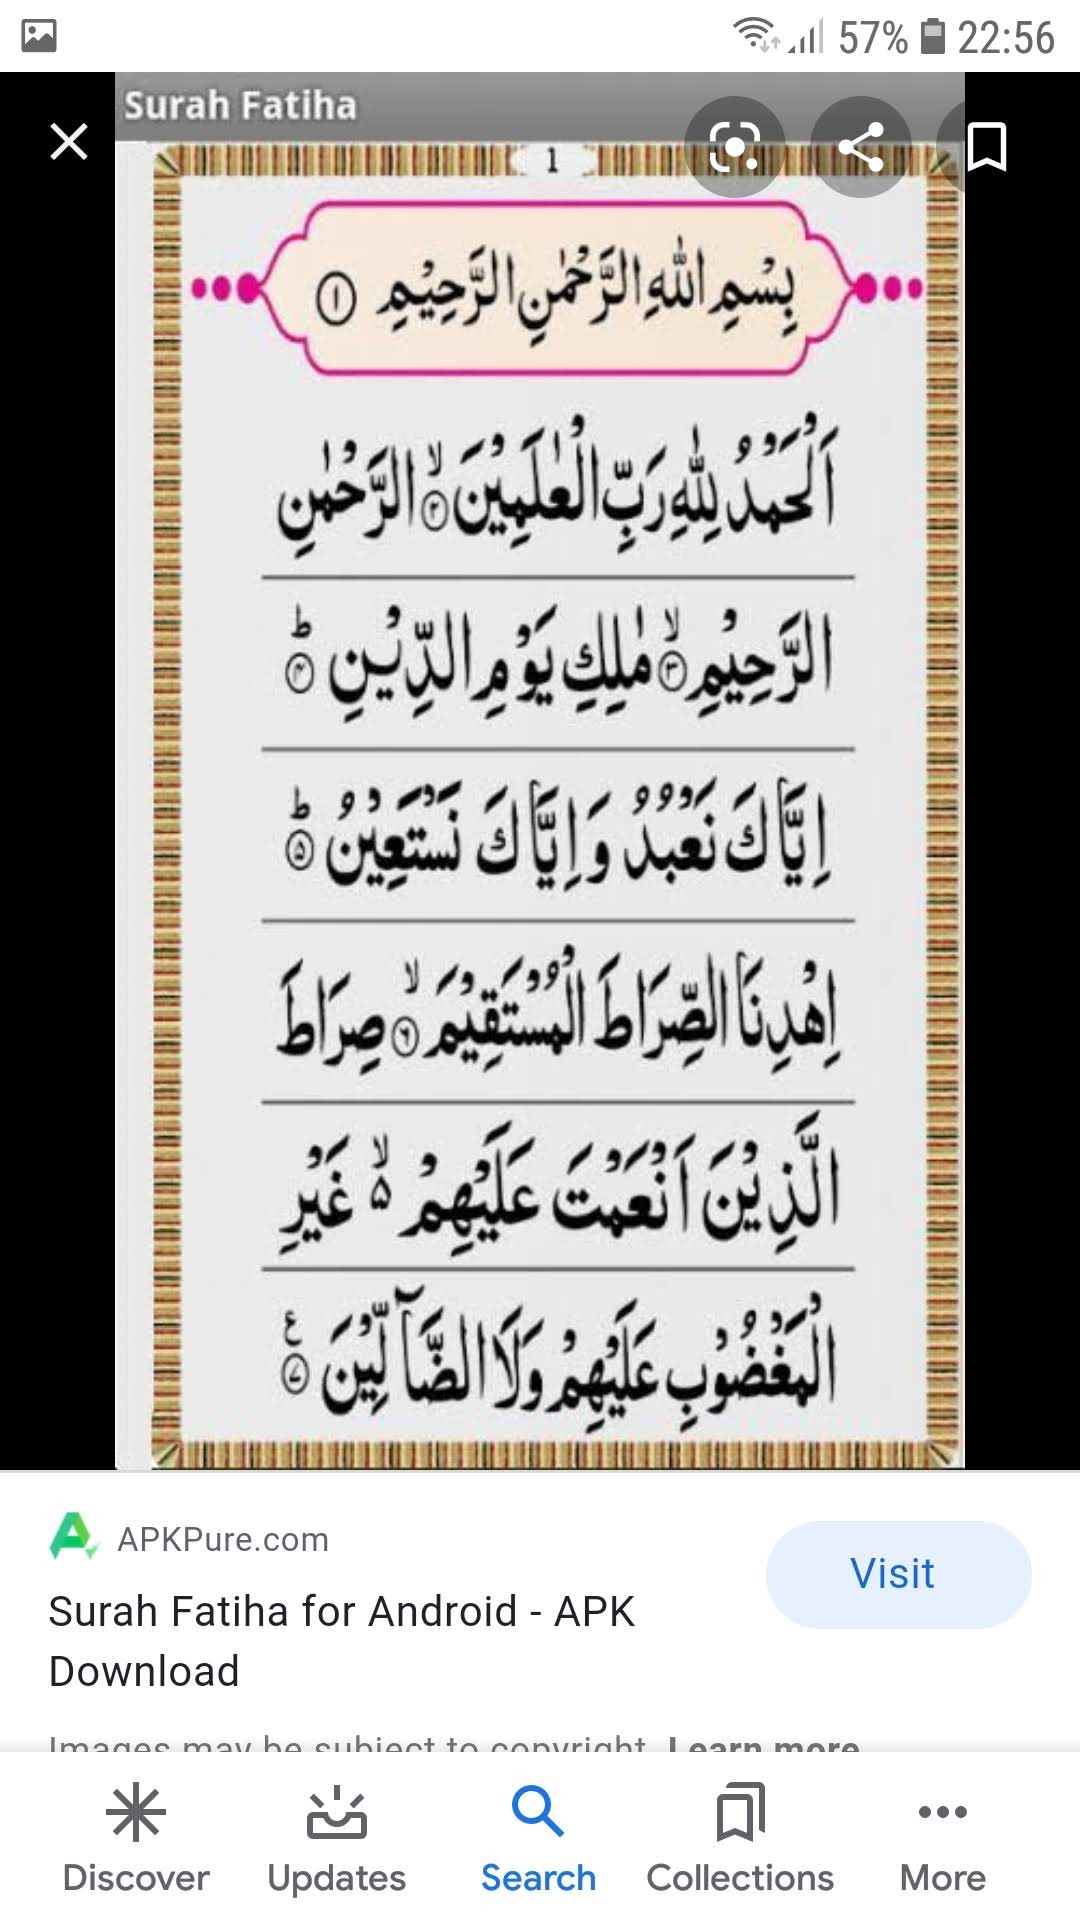 57% 22:56
Surah Fatiha
1
بِسْمِ اللّٰهِ الرَّحْمٰنِ الرَّحِيْمِ ١
اَلْحَمْدُ لِلّٰهِ رَبِّ الْعٰلَمِيْنَ ۙ ٢ الرَّحْمٰنِ
الرَّحِيْمِ ۙ ٣ مٰلِكِ يَوْمِ الدِّيْنِ ؕ ۴
اِيَّاكَ نَعْبُدُ وَاِيَّاكَ نَسْتَعِيْنُ ؕ ۵
اِهْدِنَا الصِّرَاطَ الْمُسْتَقِيْمَ ۙ ۶ صِرَاطَ
الَّذِيْنَ اَنْعَمْتَ عَلَيْهِمْ ۙ ۵ غَيْرِ
الْمَغْضُوْبِ عَلَيْهِمْ وَلَا الضَّآلِّيْنَ ع ٧
APKPure.com
Visit
Surah Fatiha for Android - APK
Download
Images may be subject to copyright. Learn more
Discover Updates Search Collections More